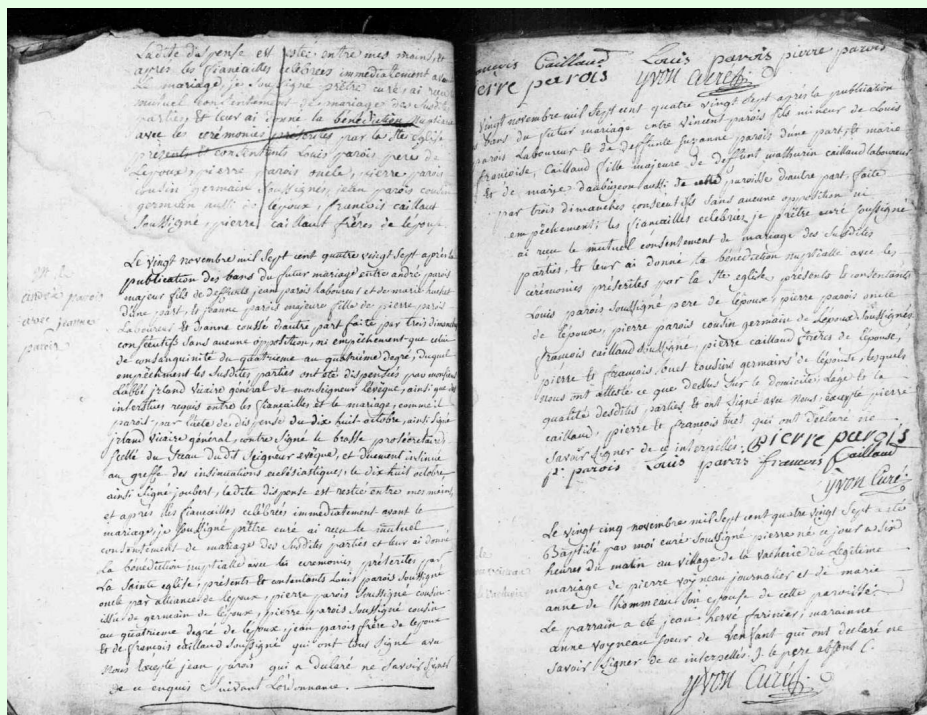 Ladite dispense est restée entre mes mains, et
après les fiançailles célébrées immédiatement avant
le mariage, je soussigné prêtre curé, ai reçu
mutuel consentement de mariage des susdites
parties et leur ai donné la bénédiction nuptiale
avec les cérémonies prescrites par la Ste Eglise
présents & consentants Louis parois père de
l'époux, pierre parois oncle, pierre parois
cousin germain soussignés, jean parois cousin
germain aussi de l'époux, françois caillaut
soussigné, pierre caillaut frères de l'épouse
Le vingt novembre mil sept cent quatre vingt sept après la
publication des bans du futur mariage entre andré parois
majeur fils de deffunts jean parois laboureur et de marie
d'une part, & jeanne parois majeure fille de pierre parois
laboureur & d'anne cousse d'autre part faite par trois dimanches
consécutifs sans aucune opposition, ni empêchement que celui
de consanguinité du quatrieme au quatrième degré, duquel
empêchement les susdites parties ont été dispensées par monsieur
l'abbé jrland vicaire général de monseigneur l'évêque, ainsi que des
interstices requis entre les fiançailles et le mariage, comme il
parois par l'acte de dispense du dix huit octobre, ainsi signé
jrland vicaire général, contre signé le brasse prosecrétaire
scellé du sceau dudit seigneur evêque, et duement insinué
au greffe des insinuations ecclésiastiques, le dix huit octobre,
ainsi signé joubert, ladite dispense est restée entre mes mains,
et après les fiançailles célébrées immédiatement avant le
mariage, je soussigné prêtre curé ai reçu le mutuel
consentement de mariage des susdites parties et leur ai donné
la bénédiction nuptialle avec les cérémonies prescrites par
la sainte église; présents & consentants Louis parois soussigné
oncle par alliance de l'époux, pierre parois soussigné cousin
issu de germain de l'époux, pierre parois soussigné cousin
au quatrième degré de l'époux, jean parois frère de l'époux
& de françois caillaud soussigné qui ont tous signé avec
nous excepté jean parois qui a déclaré ne savoir signer
de ce enquis suivant l'ordonnance.
andré parois
avec jeanne
parois
françois Caillaud Louis parois pierre parois
pierre parois yvon curé
vingt novembre mil sept cent quatre vingt sept après la publication
des bans du futur mariage entre vincent parois fils mineur de Louis
parois laboureur & de deffunte suzanne parois d'une part, & marie
françoise Caillaud fille majeure de deffunt mathurin caillaud laboureur
& de marie daubuzeon aussi de cette paroisse d'autre part, faite
par trois dimanches consécutifs sans aucune opposition ni
empêchement; les fiançailles célébrées je prêtre curé soussigné
ai reçu le mutuel consentement de mariage des susdites
parties, & leur ai donné la bénédiction nuptialle avec les
cérémonies prescrites par la Ste eglise présents & consentants
Louis parois soussigné pere de l'époux, pierre parois oncle
de l'époux, pierre parois cousin germain de l'époux soussignés,
françois caillaud soussigné, pierre caillaud frères de l'épouse,
pierre & françois cousins germains de l'épouse, lesquels
nous ont attesté ce que dessus sur le domicile, l'age & la
qualité desdites parties & ont signé avec nous, excepté pierre
caillaud, pierre & françois qui ont déclaré ne
savoir signer de ce interpellés. pierre parois
p. parois Louis parois françois Caillaud
yvon Curé
Le vingt cinq novembre mil sept cent quatre vingt sept a été
Baptisé par moi curé soussigné pierre né ce jour a six
heures du matin au village de la vacherie du légitime
mariage de pierre voyneau journalier et de marie
anne de l'hommeau son epouse de cette paroisse.
Le parrain a été jean hervé farinier, marainne
anne voyneau soeur de l'enfant qui ont déclaré ne
savoir signer de ce interpellés. & le pere absent
yvon Curé